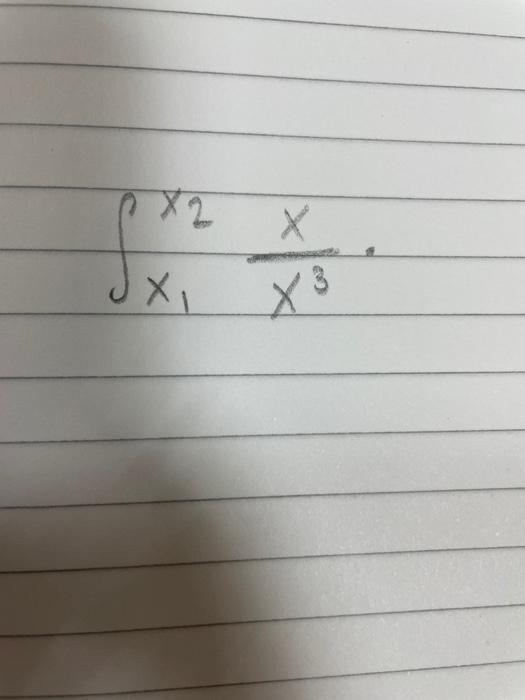 ∫_{x₁}^{x₂} x/x³ .